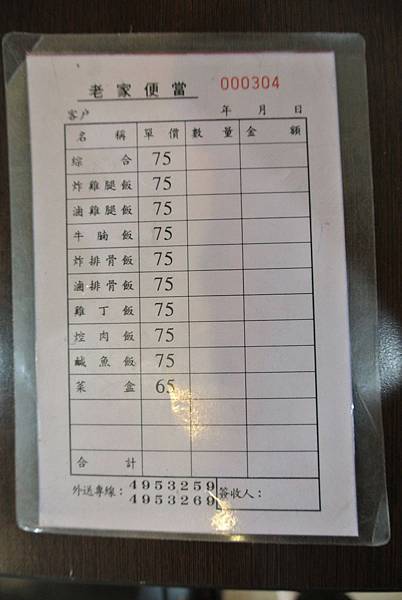 老家便當 000304
客戶 年 月 日
名稱 單價 數量 金額
綜合 75
炸雞腿飯 75
滷雞腿飯 75
牛腩飯 75
炸排骨飯 75
滷排骨飯 75
雞丁飯 75
焢肉飯 75
鹹魚飯 75
菜盒 65
合計
外送專線：4953259 簽收人：
4953269